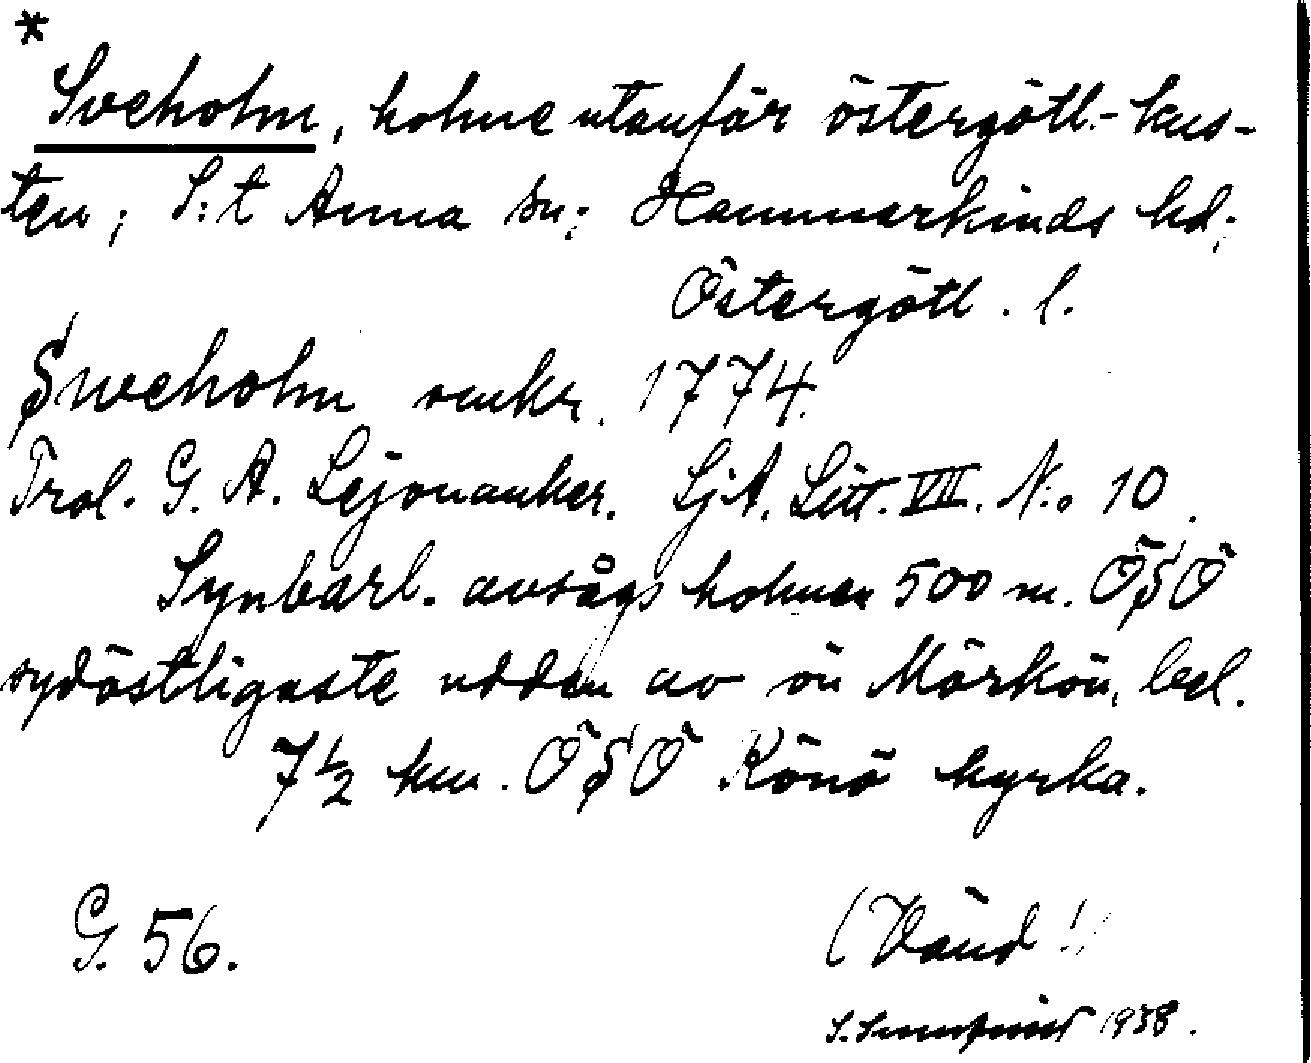 *
Sveholm, holme utanför östergötl.- kus-
ten; S:t Anna sn; Hammarkinds hd;
Östergötl. l.
Sweholm omkr. 1774.
Prol. G. A. Lejonanker. LjA. Litt. VII. N:o 10.
Synbarl. avsågs holmen 500 m. ÖSÖ
sydöstligaste udden av ön Mörkön, bel.
7½ km. ÖSÖ Rönö kyrka.
G. 56.
(Vänd!)
1938.